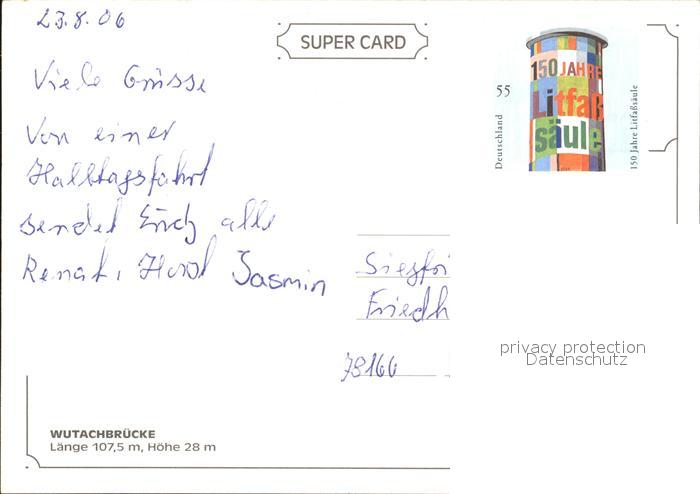 23.8.06
SUPER CARD
Viele Grüsse
Von einer
Halbtagsfahrt
sendet Euch alle
Renat, Horst Jasmin
55
Deutschland
150 JAHRE
Litfaß
säule
150 Jahre Litfaßsäule
Siegfri
Friedh
78166
privacy protection
Datenschutz
WUTACHBRÜCKE
Länge 107,5 m, Höhe 28 m